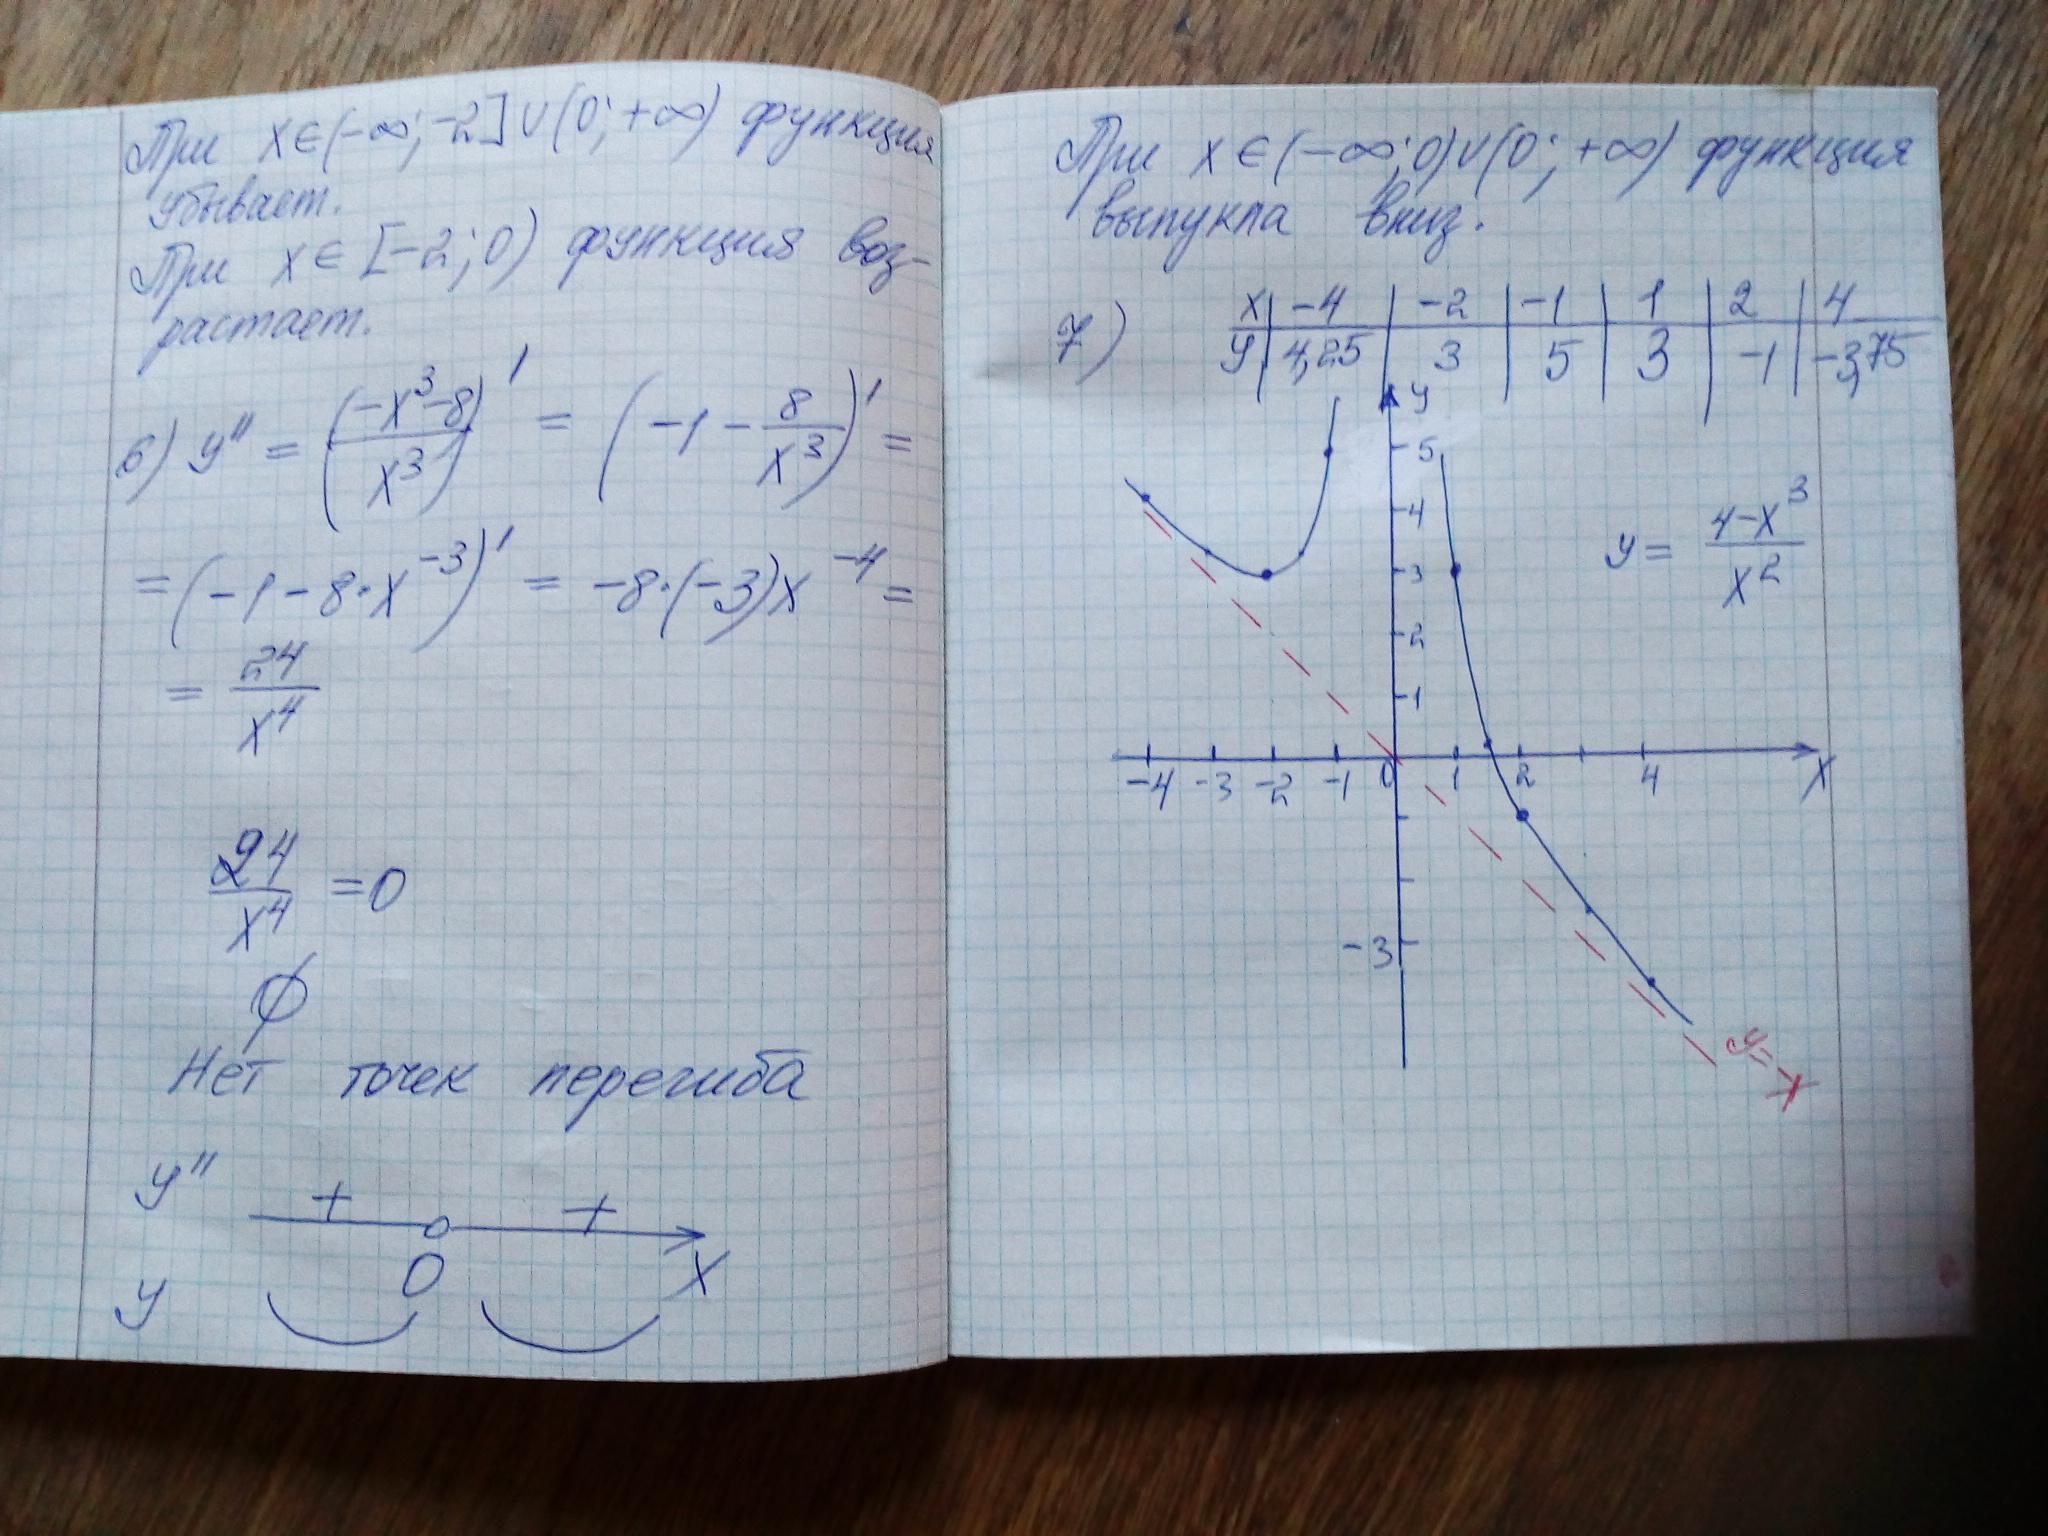 При x∈(-∞; -2]∪(0; +∞) функция
убывает.
При x∈[-2; 0) функция воз-
растает.
6) y'' = ((-x³-8)/x³)' = (-1 - 8/x³)' =
= (-1-8·x⁻³)' = -8·(-3)x⁻⁴ =
= 24/x⁴
24/x⁴ = 0
∅
Нет точек перегиба
y''
+ +
0 x
y
При x∈(-∞; 0)∪(0; +∞) функция
выпукла вниз.
7) x | -4 | -2 | -1 | 1 | 2 | 4
y | 4,25 | 3 | 5 | 3 | -1 | -3,75
y
5
4
y = (4-x³)/x²
3
2
1
-4 -3 -2 -1 0 1 2 4 x
-3
y=-x